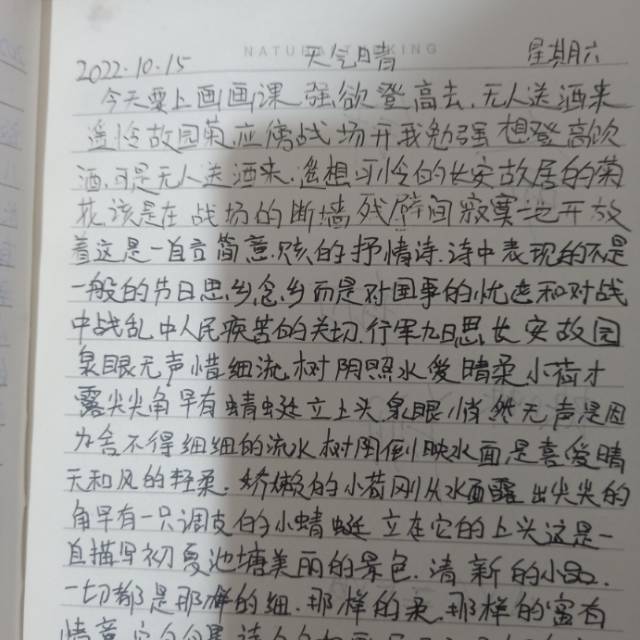 NATURAL KING
2022.10.15 天气晴 星期六
今天要上画画课 强欲登高去,无人送酒来
遥怜故园菊应傍战场开我勉强想登高饮
酒,可是无人送酒来.遥想可怜的长安故居的菊
花该是在战场的断墙残壁间寂寞地开放
着这是一首言简意赅的抒情诗.诗中表现的不是
一般的节日思乡念乡而是对国事的忧虑和对战
中战乱中人民疾苦的关切.行军九日思长安故园
泉眼无声惜细流,树阴照水爱晴柔小荷才
露尖尖角早有蜻蜓立上头泉眼悄然无声是因
为舍不得细细的流水树阴倒映水面是喜爱晴
天和风的轻柔.娇嫩的小荷刚从水面露出尖尖的
角早有一只调皮的小蜻蜓立在它的上头这是一
首描写初夏池塘美丽的景色.清新的小品.
一切都是那样的细.那样的柔.那样的富有
情意